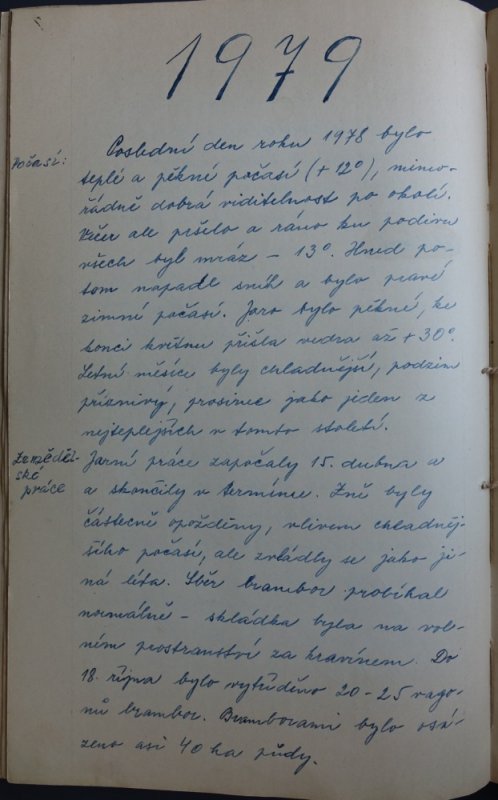 1979
Počasí:
Poslední den roku 1978 bylo
teplé a pěkné počasí (+12°), mimo-
řádně dobrá viditelnost po okolí.
Večer ale pršelo a ráno ku podivu
všech byl mráz – 13°. Hned po-
tom napadl sníh a bylo pravé
zimní počasí. Jaro bylo pěkné, ke
konci května přišla vedra až +30°.
Letní měsíce byly chladnější, podzim
příznivý, prosinec jako jeden z
nejteplejších v tomto století.
Zeměděl-
ské
práce
Jarní práce započaly 15. dubna a
a skončily v termínu. Žně byly
částečně opožděny, vlivem chladněj-
šího počasí, ale zvládly se jako ji-
ná léta. Sběr brambor probíhal
normálně – skládka byla na vol-
ném prostranství za kravínem. Do
18. října bylo vytříděno 20-25 vago-
nů brambor. Bramborami bylo osá-
zeno asi 40 ha půdy.